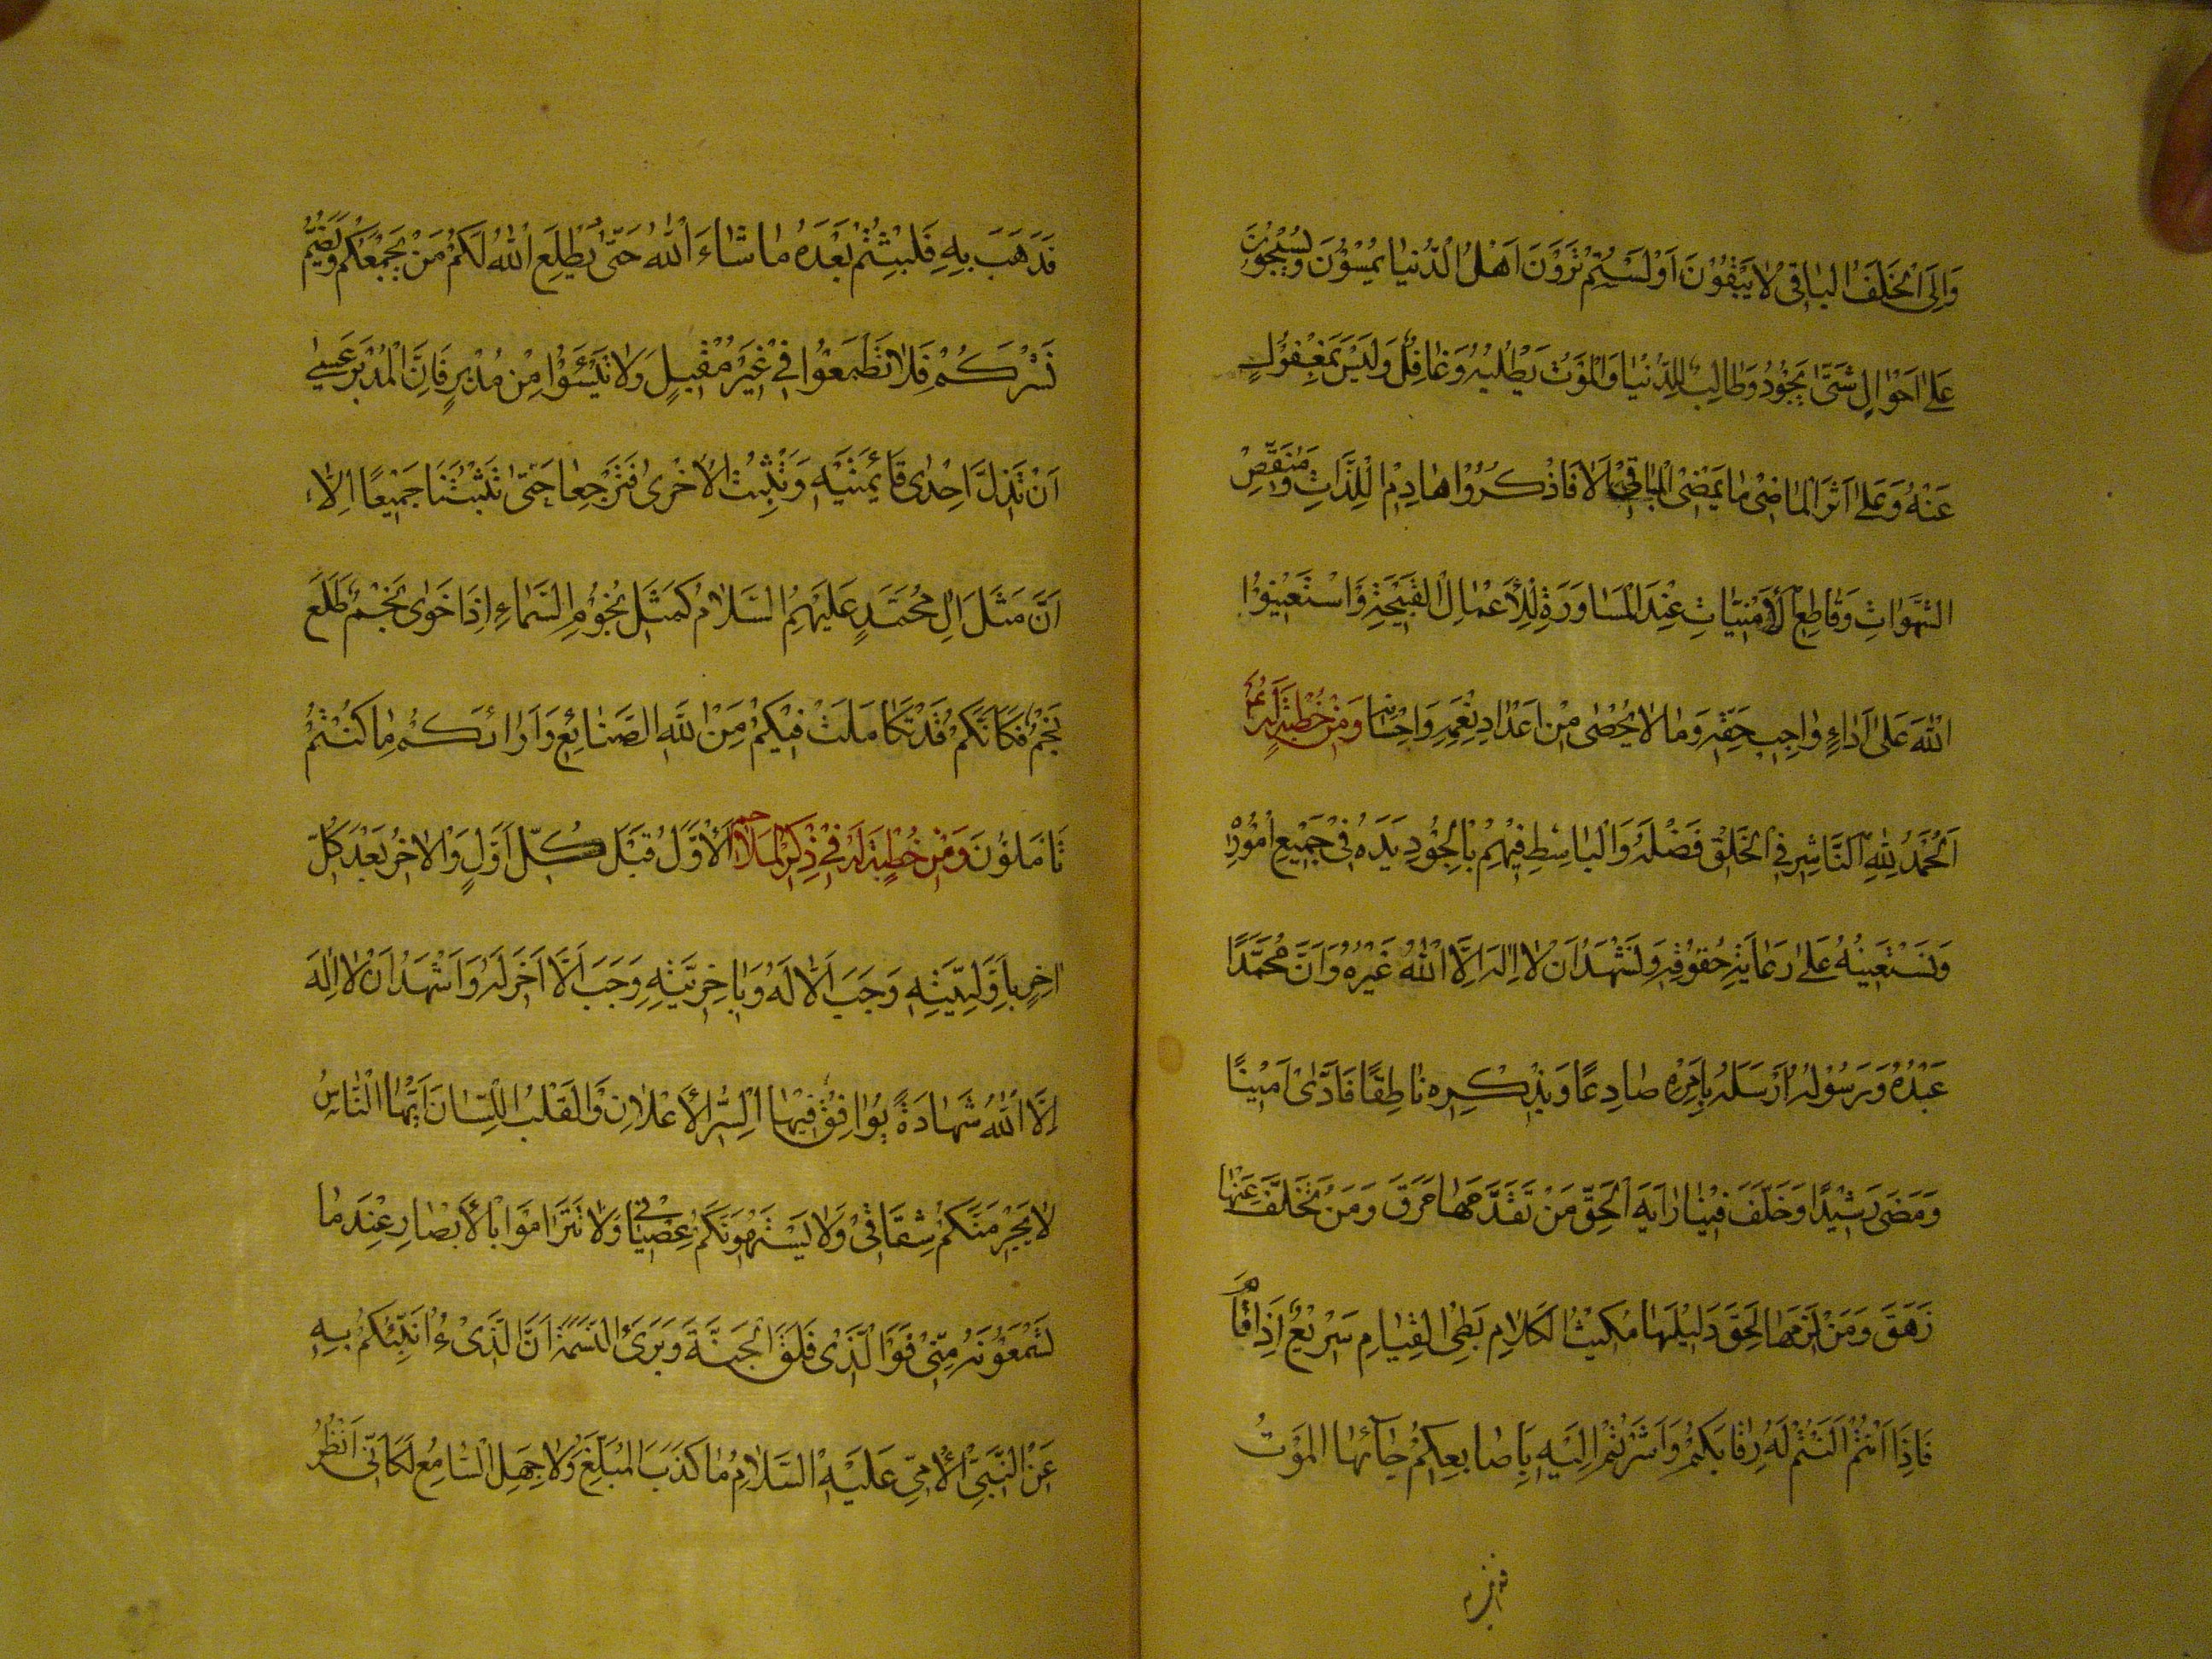 وَاِلَى الْخَلَفِ الْبَاقِى لَا يَبْقَوْنَ اَوَلَسْتُمْ تَرَوْنَ اَهْلَ الدُّنْيَا يُمْسُوْنَ وَيُصْبِحُوْنَ
عَلٰى اَحْوَالٍ شَتّٰى وَطَالِبٌ لِلدُّنْيَا وَالْمَوْتُ يَطْلُبُهُ وَغَافِلٌ وَلَيْسَ بِمَغْفُوْلٍ
عَنْهُ وَعَلٰى اَثَرِ الْمَاضِىْ مَا يَمْضِى الْبَاقِىْ اَلَا فَاذْكُرُوْا هَادِمَ اللَّذَّاتِ وَمُنَغِّصَ
الشَّهَوَاتِ وَقَاطِعَ الْأُمْنِيَّاتِ عِنْدَ الْمُسَاوَرَةِ لِلْأَعْمَالِ الْقَبِيْحَةِ وَاسْتَعِيْنُوْا
اللّٰهَ عَلٰى اَدَاءِ وَاجِبِ حَقِّهِ وَمَا لَا يُحْصٰى مِنْ اَعْدَادِ نِعَمِهِ وَاِحْسَانِهِ وَمِنْ خُطْبَةٍ لَهُ
اَلْحَمْدُ لِلّٰهِ النَّاشِرِ فِى الْخَلْقِ فَضْلَهُ وَالْبَاسِطِ فِيْهِمْ بِالْجُوْدِ يَدَهُ فِىْ جَمِيْعِ اُمُوْرِهِ
وَنَسْتَعِيْنُهُ عَلٰى رِعَايَةِ حُقُوْقِهِ وَنَشْهَدُ اَنْ لَا اِلٰهَ اِلَّا اللّٰهُ غَيْرُهُ وَاَنَّ مُحَمَّدًا
عَبْدُهُ وَرَسُوْلُهُ اَرْسَلَهُ بِاَمْرِهِ صَادِعًا وَبِذِكْرِهِ نَاطِقًا فَاَدّٰى اَمِيْنًا
وَمَضٰى رَشِيْدًا وَخَلَّفَ فِيْنَا رَايَةَ الْحَقِّ مَنْ تَقَدَّمَهَا مَرَقَ وَمَنْ تَخَلَّفَ عَنْهَا
زَهَقَ وَمَنْ لَزِمَهَا لَحِقَ دَلِيْلُهَا مَكِيْثُ الْكَلَامِ بَطِىْءُ الْقِيَامِ سَرِيْعٌ اِذَا قَامَ
فَاِذَا اَنْتُمْ اَلَنْتُمْ لَهُ رِقَابَكُمْ وَاَشَرْتُمْ اِلَيْهِ بِاَصَابِعِكُمْ جَائَهَا الْمَوْتُ
فَذَهَبَ بِهِ فَلَبِثْتُمْ بَعْدَهُ مَا شَاءَ اللّٰهُ حَتّٰى يُطْلِعَ اللّٰهُ لَكُمْ مَنْ يَجْمَعُكُمْ وَيَضُمُّ
نَشْرَكُمْ فَلَا تَطْمَعُوْا فِىْ غَيْرِ مُقْبِلٍ وَلَا تَيْئَسُوْا مِنْ مُدْبِرٍ فَاِنَّ الْمُدْبِرَ عَسٰى
اَنْ تَزِلَّ اِحْدٰى قَائِمَتَيْهِ وَتَثْبُتَ الْاُخْرٰى فَتَرْجِعَا حَتّٰى تَثْبُتَا جَمِيْعًا اَلَا
اِنَّ مَثَلَ اٰلِ مُحَمَّدٍ عَلَيْهِمُ السَّلَامُ كَمَثَلِ نُجُوْمِ السَّمَاءِ اِذَا خَوٰى نَجْمٌ طَلَعَ
نَجْمٌ فَكَاَنَّكُمْ قَدْ تَكَامَلَتْ فِيْكُمْ مِنَ اللّٰهِ الصَّنَائِعُ وَاَرَاكُمْ مَا كُنْتُمْ
تَأْمَلُوْنَ وَمِنْ خُطْبَةٍ لَهُ فِىْ ذِكْرِ الْمَلَاحِمِ اَلْاَوَّلُ قَبْلَ كُلِّ اَوَّلٍ وَالْاٰخِرُ بَعْدَ كُلِّ
اٰخِرٍ بِاَوَّلِيَّتِهِ وَجَبَ اَنْ لَا اَوَّلَ لَهُ وَبِاٰخِرِيَّتِهِ وَجَبَ اَنْ لَا اٰخِرَ لَهُ وَاَشْهَدُ اَنْ لَا اِلٰهَ
اِلَّا اللّٰهُ شَهَادَةً يُوَافِقُ فِيْهَا السِّرُّ الْأِعْلَانَ وَالْقَلْبُ اللِّسَانَ اَيُّهَا النَّاسُ
لَا يَجْرِمَنَّكُمْ شِقَاقِىْ وَلَا يَسْتَهْوِيَنَّكُمْ عِصْيَانِىْ وَلَا تَتَرَامَوْا بِالْأَبْصَارِ عِنْدَ مَا
تَسْمَعُوْنَهُ مِنِّىْ فَوَالَّذِىْ فَلَقَ الْحَبَّةَ وَبَرَئَ النَّسَمَةَ اِنَّ الَّذِىْ اُنَبِّئُكُمْ بِهِ
عَنِ النَّبِىِّ الْأُمِّىِّ عَلَيْهِ السَّلَامُ مَا كَذَبَ الْمُبَلِّغُ وَلَا جَهِلَ السَّامِعُ لَكَاَنِّىْ اَنْظُرُ